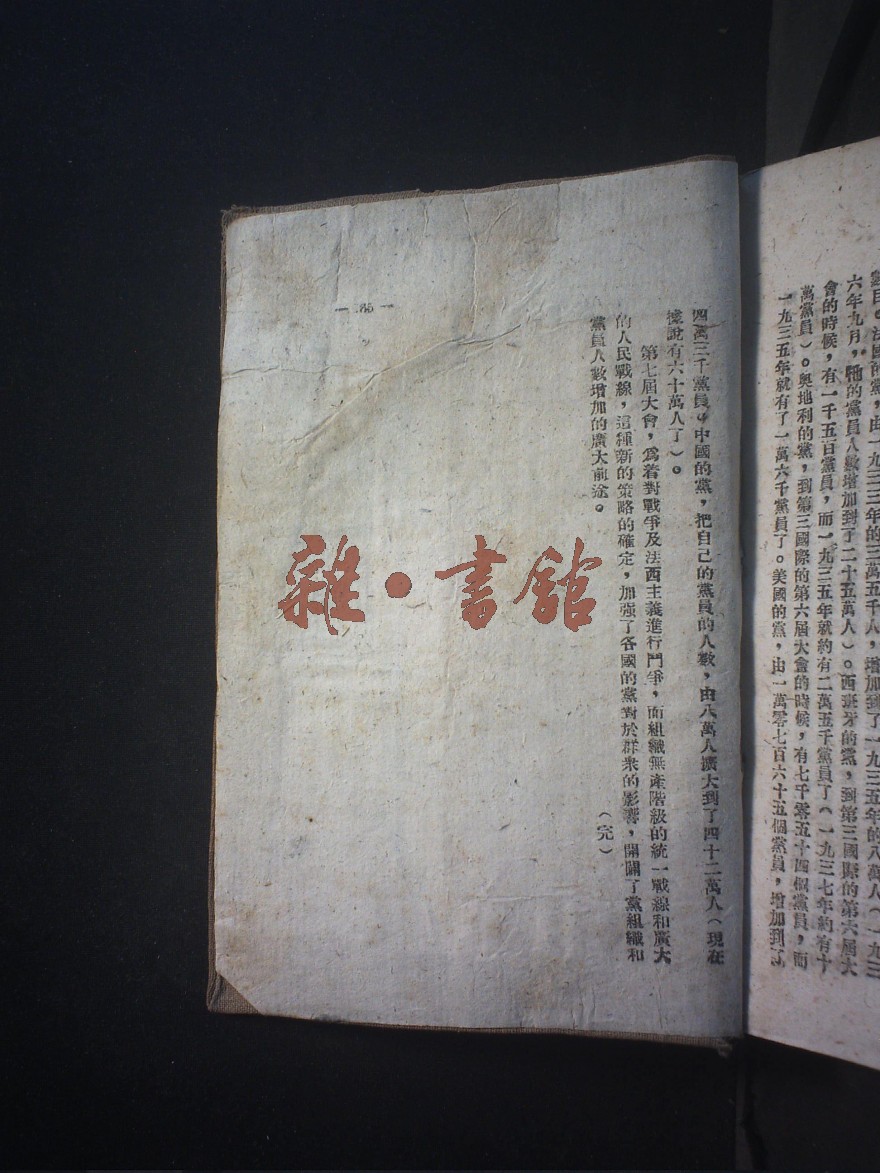 黨員。法國的黨，由一九三三年的三萬五千人，增加到了一九三五年的八萬人（一九三
六年九月，牠的黨員人數增加到了二十五萬人）。西班牙的黨，到第三國際的第六屆大
會的時候，有一千五百黨員，而一九三五年就約有二萬五千黨員了（一九三七年約有十
萬黨員）。奧地利的黨，到第三國際的第六屆大會的時候，有七千零五十四個黨員，而
一九三五年就有了一萬六千黨員了。美國的黨，由一萬零七百六十五個黨員，增加到了
四萬三千黨員。中國的黨，把自己的黨員的人數，由八萬人擴大到了四十二萬人（現在
據說有六十萬人了）。
第七屆大會，爲着對戰爭及法西主義進行鬥爭，而組織無產階級的統一戰線和廣大
的人民戰線，這種新的策略的確定，加强了各國的黨對於群衆的影響，開闢了黨組織和
黨員人數增加的廣大前途。
（完）
雜·書館